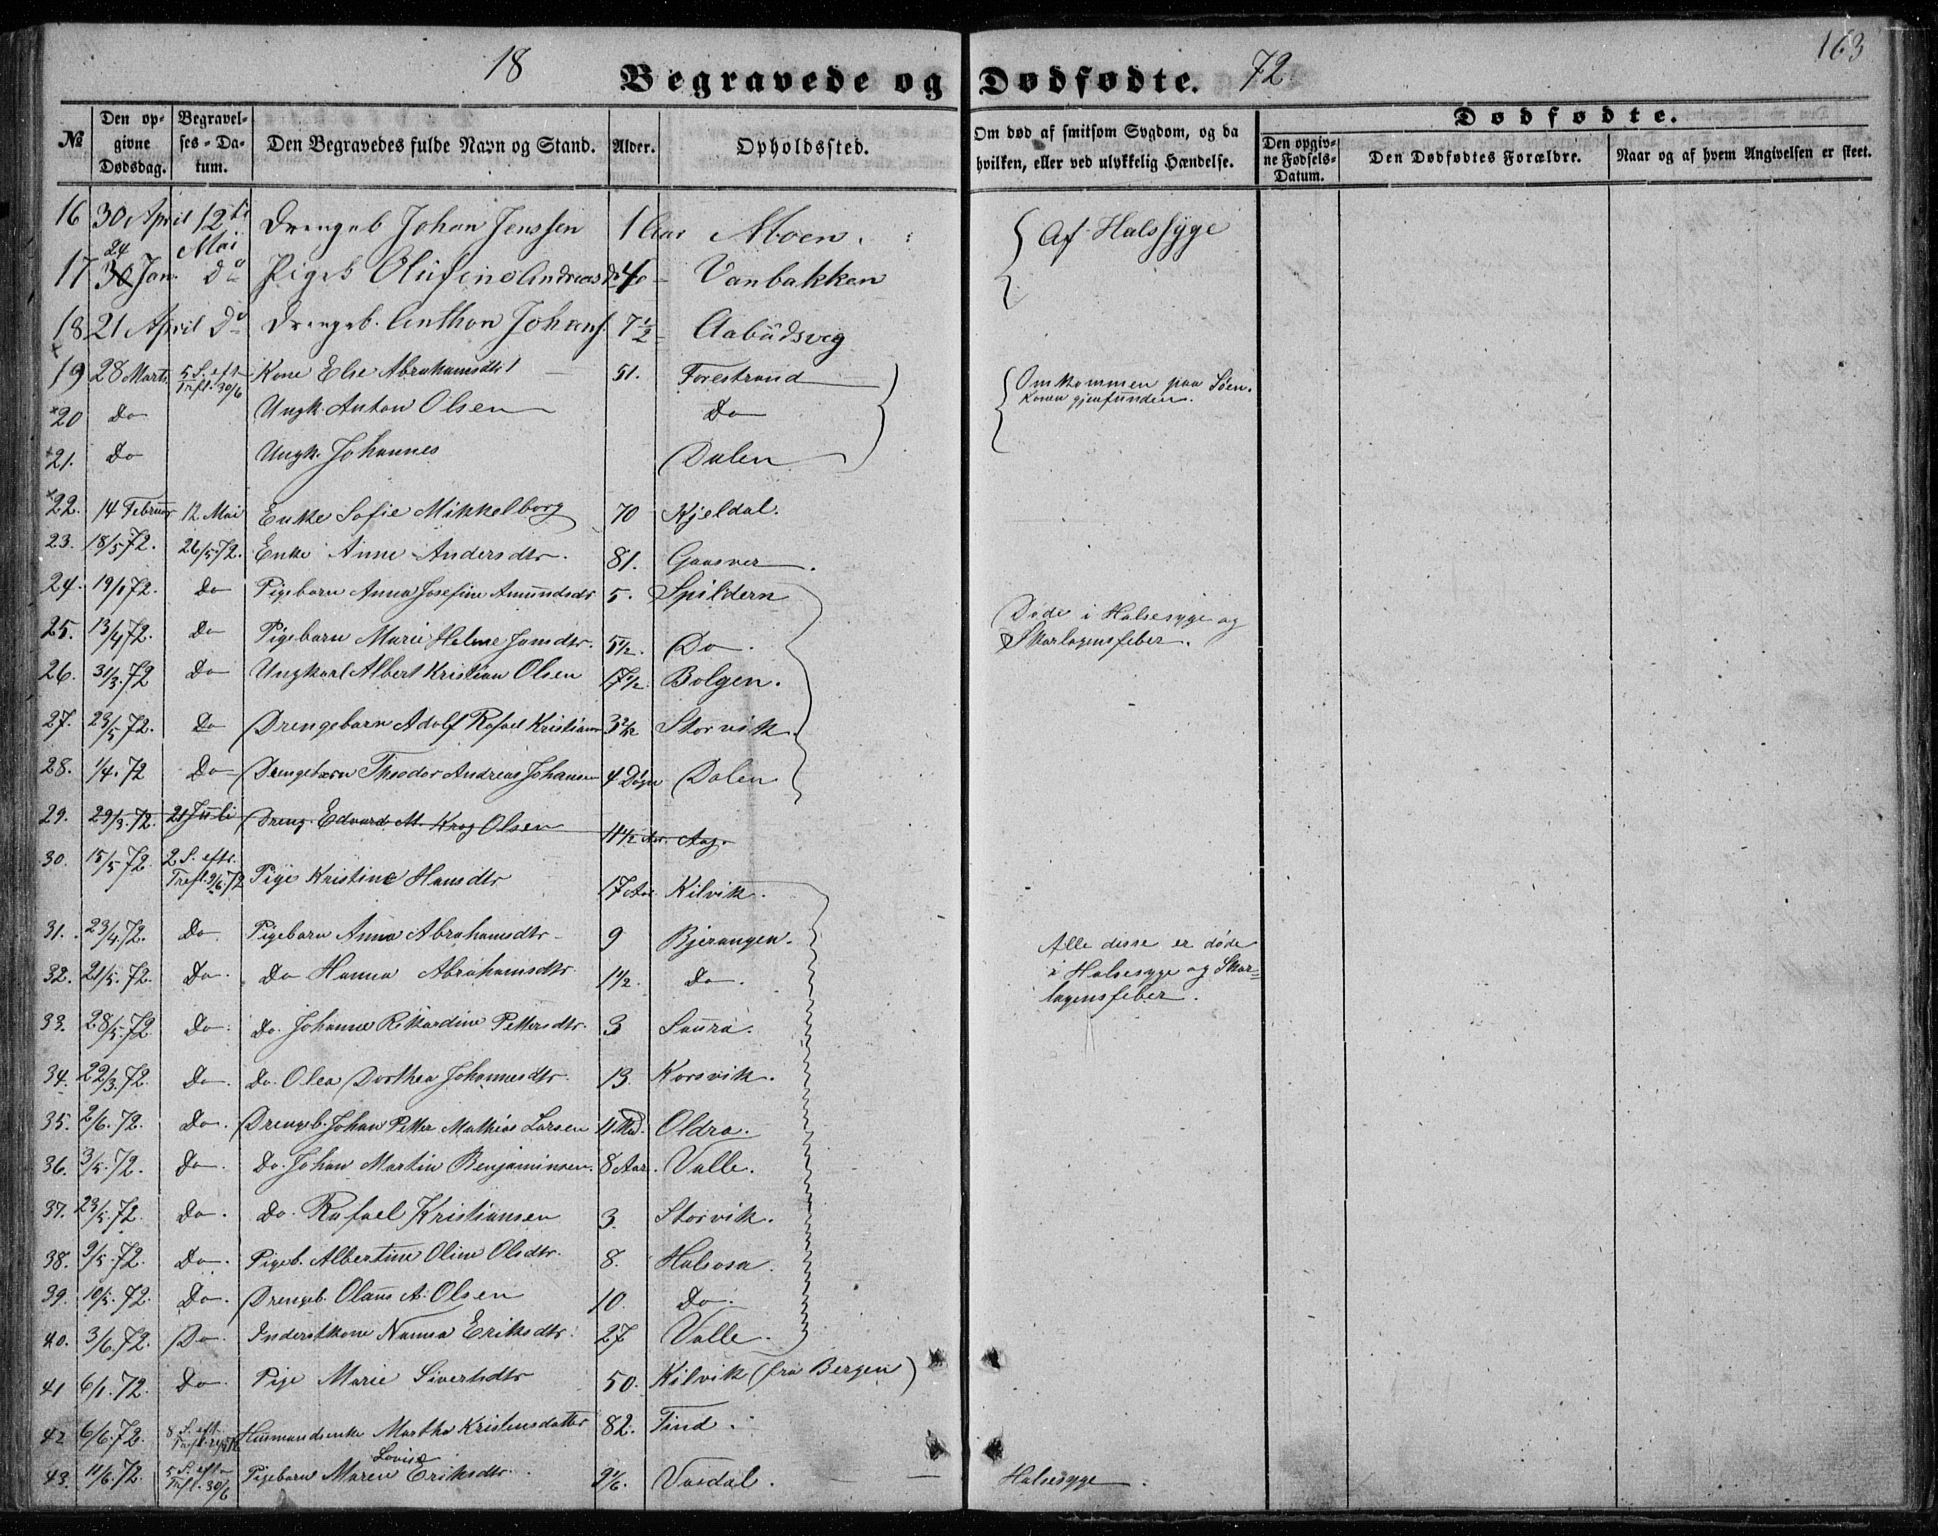 18 Begravede og Dødfødte. 72 163
№ Den opgivne Dødsdag. Begravelses-Datum. Den Begravedes fulde Navn og Stand. Alder. Opholdssted. Om død af smitsom Sygdom, og da hvilken, eller ved ulykkelig Hændelse. Dødfødte. Den opgivne Fødsels-Datum. Den Dødfødtes Forældre. Naar og af hvem Angivelsen er skeet.
16 30 April 12te Mai Drengeb Johan Jenssen 1 Aar Moen. Af Halssyge
17 24 Jan. Do Pigeb Olufine Andreasd 4 Vanbakken
18 21 April Do Drengeb. Anthon Johans. 7 1/2 Aabúdsveg
19 28 Marts 5 S. eft Trefl. 30/6 Kone Else Abrahamsdtr 51. Forestrand Omkommen paa Søen. Konen gjenfunden.
20 Do Ungk. Anton Olsen Do
21. Do Ungk. Johannes Dalen
22. 14 Februar 12 Mai Enke Sofie Mikkelborg 70 Kjeldal.
23. 18/5 72. 26/5 72. Enke Anne Andersdtr. 81. Gaasvær.
24. 19/1 72. Do Pigebarn Anna Josefine Amundsdtr 5. Spildern
25. 13/4 72. Do Pigebarn Marie Helene Jensdtr. 5 1/2. Do. Døde i Halsesyge og Skarlagensfeber.
26. 31/3 72 Do Ungkarl Albert Kristian Olsen 17 1/2. Bolgen.
27. 23/5 72. Do Drengebarn Adolf Rafael Kristiansen 3 2/12 Storvik.
28. 1/4. 72 Do Drengebarn Theodor Andreas Johansen 4 Døgn Dalen
29. 29/3. 72. 21 Juli Dreng. Edvard M. Krog Olsen 4 1/2 Aar. Aag.
30. 15/5 72. 2 S. eftr. Trefl. 9/6. 72 Pige Kristine Hansdtr 17 Aar Kilvik.
31. 23/4. 72. Do. Pigebarn Anna Abrahamsdtr 9 Bjerangen. Alle disse er døde i Halsesyge og Skarlagensfeber.
32. 21/5. 72. Do. Do Hanna Abrahamsdtr. 1 1/2. Do.
33. 28/5. 72 Do. Do. Johanne Rikardine Pettersdtr. 3 Saura.
34. 22/3. 72. Do. Do. Olea Dorthea Johannesdtr. 13. Korsvik.
35. 2/6. 72. Do. Drengeb. Johan Petter Mathias Larsen 4 Md. Oldra.
36. 3/5. 72. Do. Do. Johan Martin Benjaminsen. 8 Aar. Valle.
37. 23/5. 72. Do. Do. Rafael Kristiansen 3. Storvik.
38. 9/5. 72. Do. Pigeb. Albertine Oline Olsdtr. 8. Halsosa.
39. 10/5. 72. Do. Drengeb. Olaus A. Olsen 10. Do.
40. 3/6. 72. Do. Inderstkone Nanna Eriksdtr. 27 Valle.
41 6/1. 72. Do. Pige Marie Sivertsdtr 50. Kilvik (fra Bergen)
42 6/6. 72. 8 S. eft. Trefl. Husmandsenke Martha Kristensdatter 82. Find.
43. 11/6. 72. 5 S. eft Trefl. 30/6 Pigebarn Maren Lovise Eriksdtr. 9 1/6. Vasdal. Halsesyge.